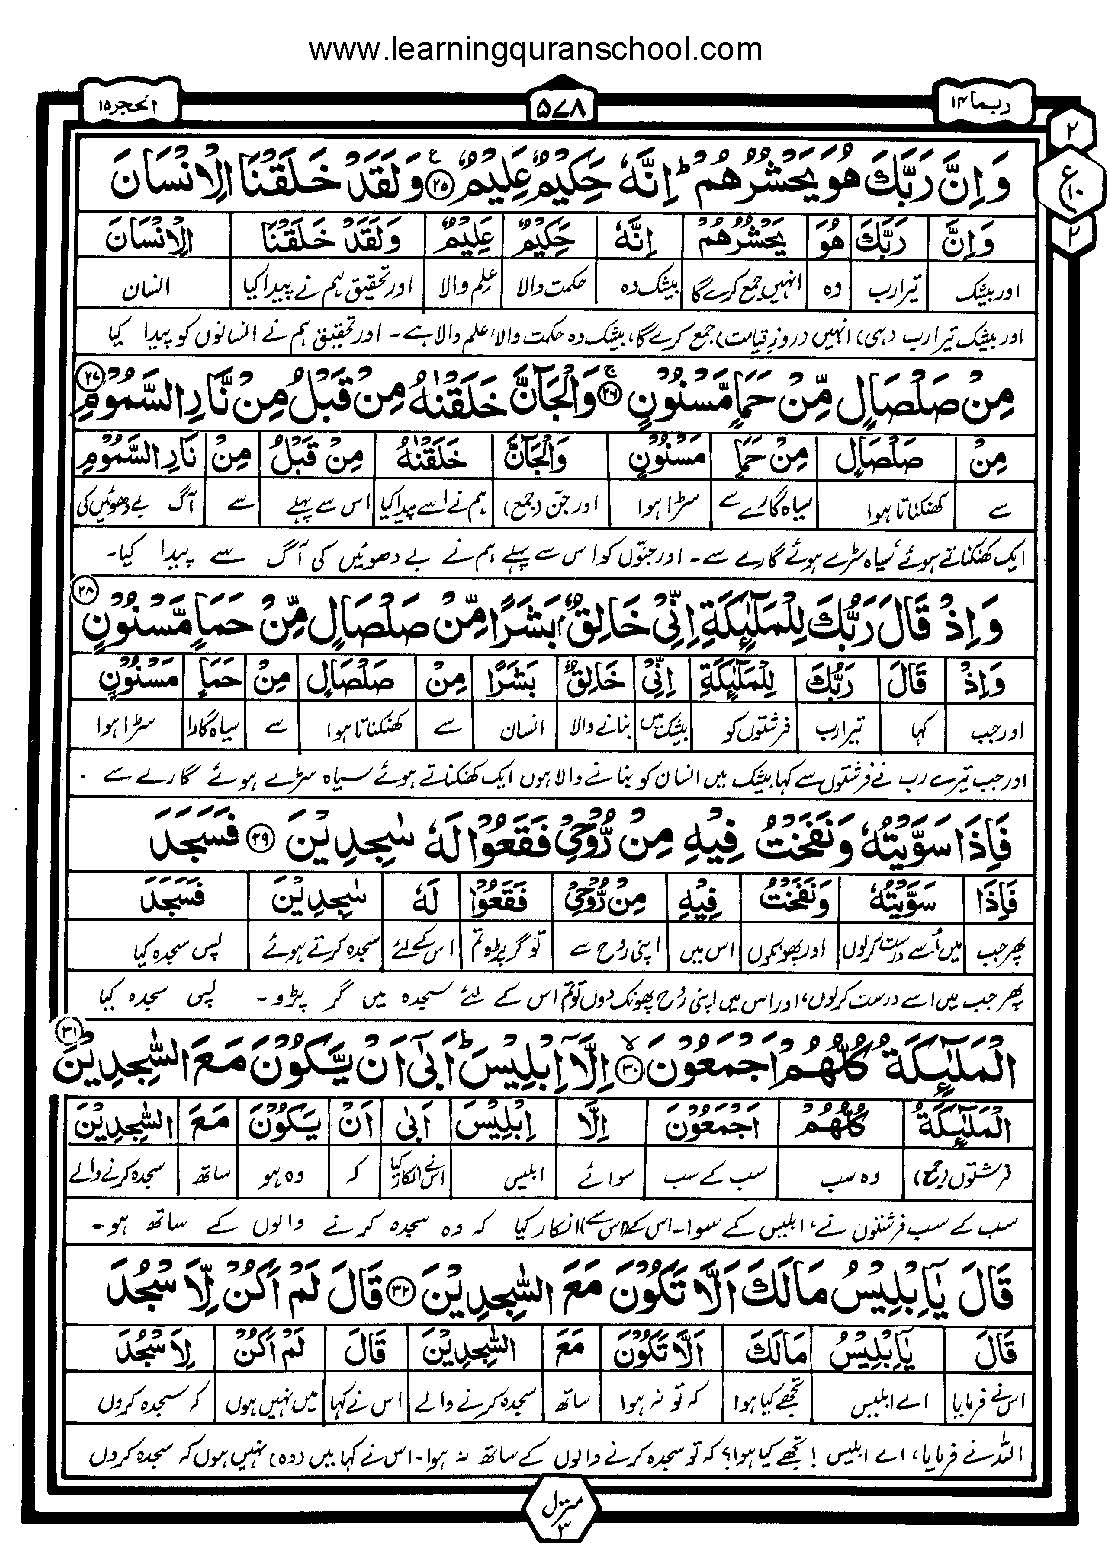 www.learningquranschool.com
ربما ۱۴
۵۷۸
الحجر ۱۵
۲
ع ۱۰
۲
وَاِنَّ رَبَّكَ هُوَ يَحْشُرُهُمْ ؕ اِنَّهٗ حَكِيْمٌ عَلِيْمٌ ۲۵ ع وَلَقَدْ خَلَقْنَا الْاِنْسَانَ
وَاِنَّ رَبَّكَ هُوَ يَحْشُرُهُمْ اِنَّهٗ حَكِيْمٌ عَلِيْمٌ وَلَقَدْ خَلَقْنَا الْاِنْسَانَ
اور بیشک تیرا رب وہ انہیں جمع کرے گا بیشک وہ حکمت والا علم والا اور تحقیق ہم نے پیدا کیا انسان
اور بیشک تیرا رب (ہی) انہیں (روزِ قیامت) جمع کرے گا، بیشک وہ حکمت والا، علم والا ہے۔ اور تحقیق ہم نے انسانوں کو پیدا کیا
مِنْ صَلْصَالٍ مِّنْ حَمَاٍ مَّسْنُوْنٍ ۲۶ ج وَالْجَآنَّ خَلَقْنٰهُ مِنْ قَبْلُ مِنْ نَّارِ السَّمُوْمِ ۲۷
مِنْ صَلْصَالٍ مِنْ حَمَاٍ مَسْنُوْنٍ وَالْجَآنَّ خَلَقْنٰهُ مِنْ قَبْلُ مِنْ نَارِ السَّمُوْمِ
سے کھنکناتا ہوا سیاہ گارے سے سڑا ہوا اور جن (جمع) ہم نے اسے پیدا کیا اس سے پہلے سے آگ بے دھوئیں کی
ایک کھنکناتے ہوئے سیاہ سڑے ہوئے گارے سے۔ اور جنّوں کو اس سے پہلے ہم نے بے دھوئیں کی آگ سے پیدا کیا۔
وَاِذْ قَالَ رَبُّكَ لِلْمَلٰٓئِكَةِ اِنِّيْ خَالِقٌۢ بَشَرًا مِّنْ صَلْصَالٍ مِّنْ حَمَاٍ مَّسْنُوْنٍ ۲۸
وَاِذْ قَالَ رَبُّكَ لِلْمَلٰٓئِكَةِ اِنِّيْ خَالِقٌۢ بَشَرًا مِنْ صَلْصَالٍ مِنْ حَمَاٍ مَسْنُوْنٍ
اور جب کہا تیرا رب فرشتوں کو بیشک میں بنانے والا انسان سے کھنکناتا ہوا سے سیاہ گارا سڑا ہوا
اور جب تیرے رب نے فرشتوں سے کہا بیشک میں انسان کو بنانے والا ہوں ایک کھنکناتے ہوئے سیاہ سڑے ہوئے گارے سے۔
فَاِذَا سَوَّيْتُهٗ وَنَفَخْتُ فِيْهِ مِنْ رُّوْحِيْ فَقَعُوْا لَهٗ سٰجِدِيْنَ ۲۹ فَسَجَدَ
فَاِذَا سَوَّيْتُهٗ وَنَفَخْتُ فِيْهِ مِنْ رُّوْحِيْ فَقَعُوْا لَهٗ سٰجِدِيْنَ فَسَجَدَ
پھر جب میں اُسے درست کر لوں اور پھونکوں اس میں اپنی روح سے تو گر پڑو تم اس کے لئے سجدہ کرتے ہوئے پس سجدہ کیا
پھر جب میں اسے درست کر لوں، اور اس میں اپنی رُوح پھونک دوں تو تم اس کے لئے سجدہ میں گر پڑو۔ پس سجدہ کیا
الْمَلٰٓئِكَةُ كُلُّهُمْ اَجْمَعُوْنَ ۳۰ لا اِلَّآ اِبْلِيْسَ ؕ اَبٰٓى اَنْ يَّكُوْنَ مَعَ السّٰجِدِيْنَ ۳۱
الْمَلٰٓئِكَةُ كُلُّهُمْ اَجْمَعُوْنَ اِلَّآ اِبْلِيْسَ اَبٰٓى اَنْ يَكُوْنَ مَعَ السّٰجِدِيْنَ
فرشتوں (جمع) وہ سب سب کے سب سوائے ابلیس اس نے انکار کیا کہ وہ ہو ساتھ سجدہ کرنے والے
سب کے سب فرشتوں نے، ابلیس کے سوا۔ اس نے (اس سے) انکار کیا کہ وہ سجدہ کرنے والوں کے ساتھ ہو۔
قَالَ يٰٓاِبْلِيْسُ مَا لَكَ اَلَّا تَكُوْنَ مَعَ السّٰجِدِيْنَ ۳۲ قَالَ لَمْ اَكُنْ لِّاَسْجُدَ
قَالَ يٰٓاِبْلِيْسُ مَا لَكَ اَلَّا تَكُوْنَ مَعَ السّٰجِدِيْنَ قَالَ لَمْ اَكُنْ لِاَسْجُدَ
اس نے فرمایا اے ابلیس تجھے کیا ہوا کہ تو نہ ہوا ساتھ سجدہ کرنے والے اس نے کہا میں نہیں ہوں کہ سجدہ کروں
اللہ نے فرمایا، اے ابلیس! تجھے کیا ہوا؟ کہ تو سجدہ کرنے والوں کے ساتھ نہ ہوا۔ اس نے کہا میں (وہ) نہیں ہوں کہ سجدہ کروں
منزل ۳